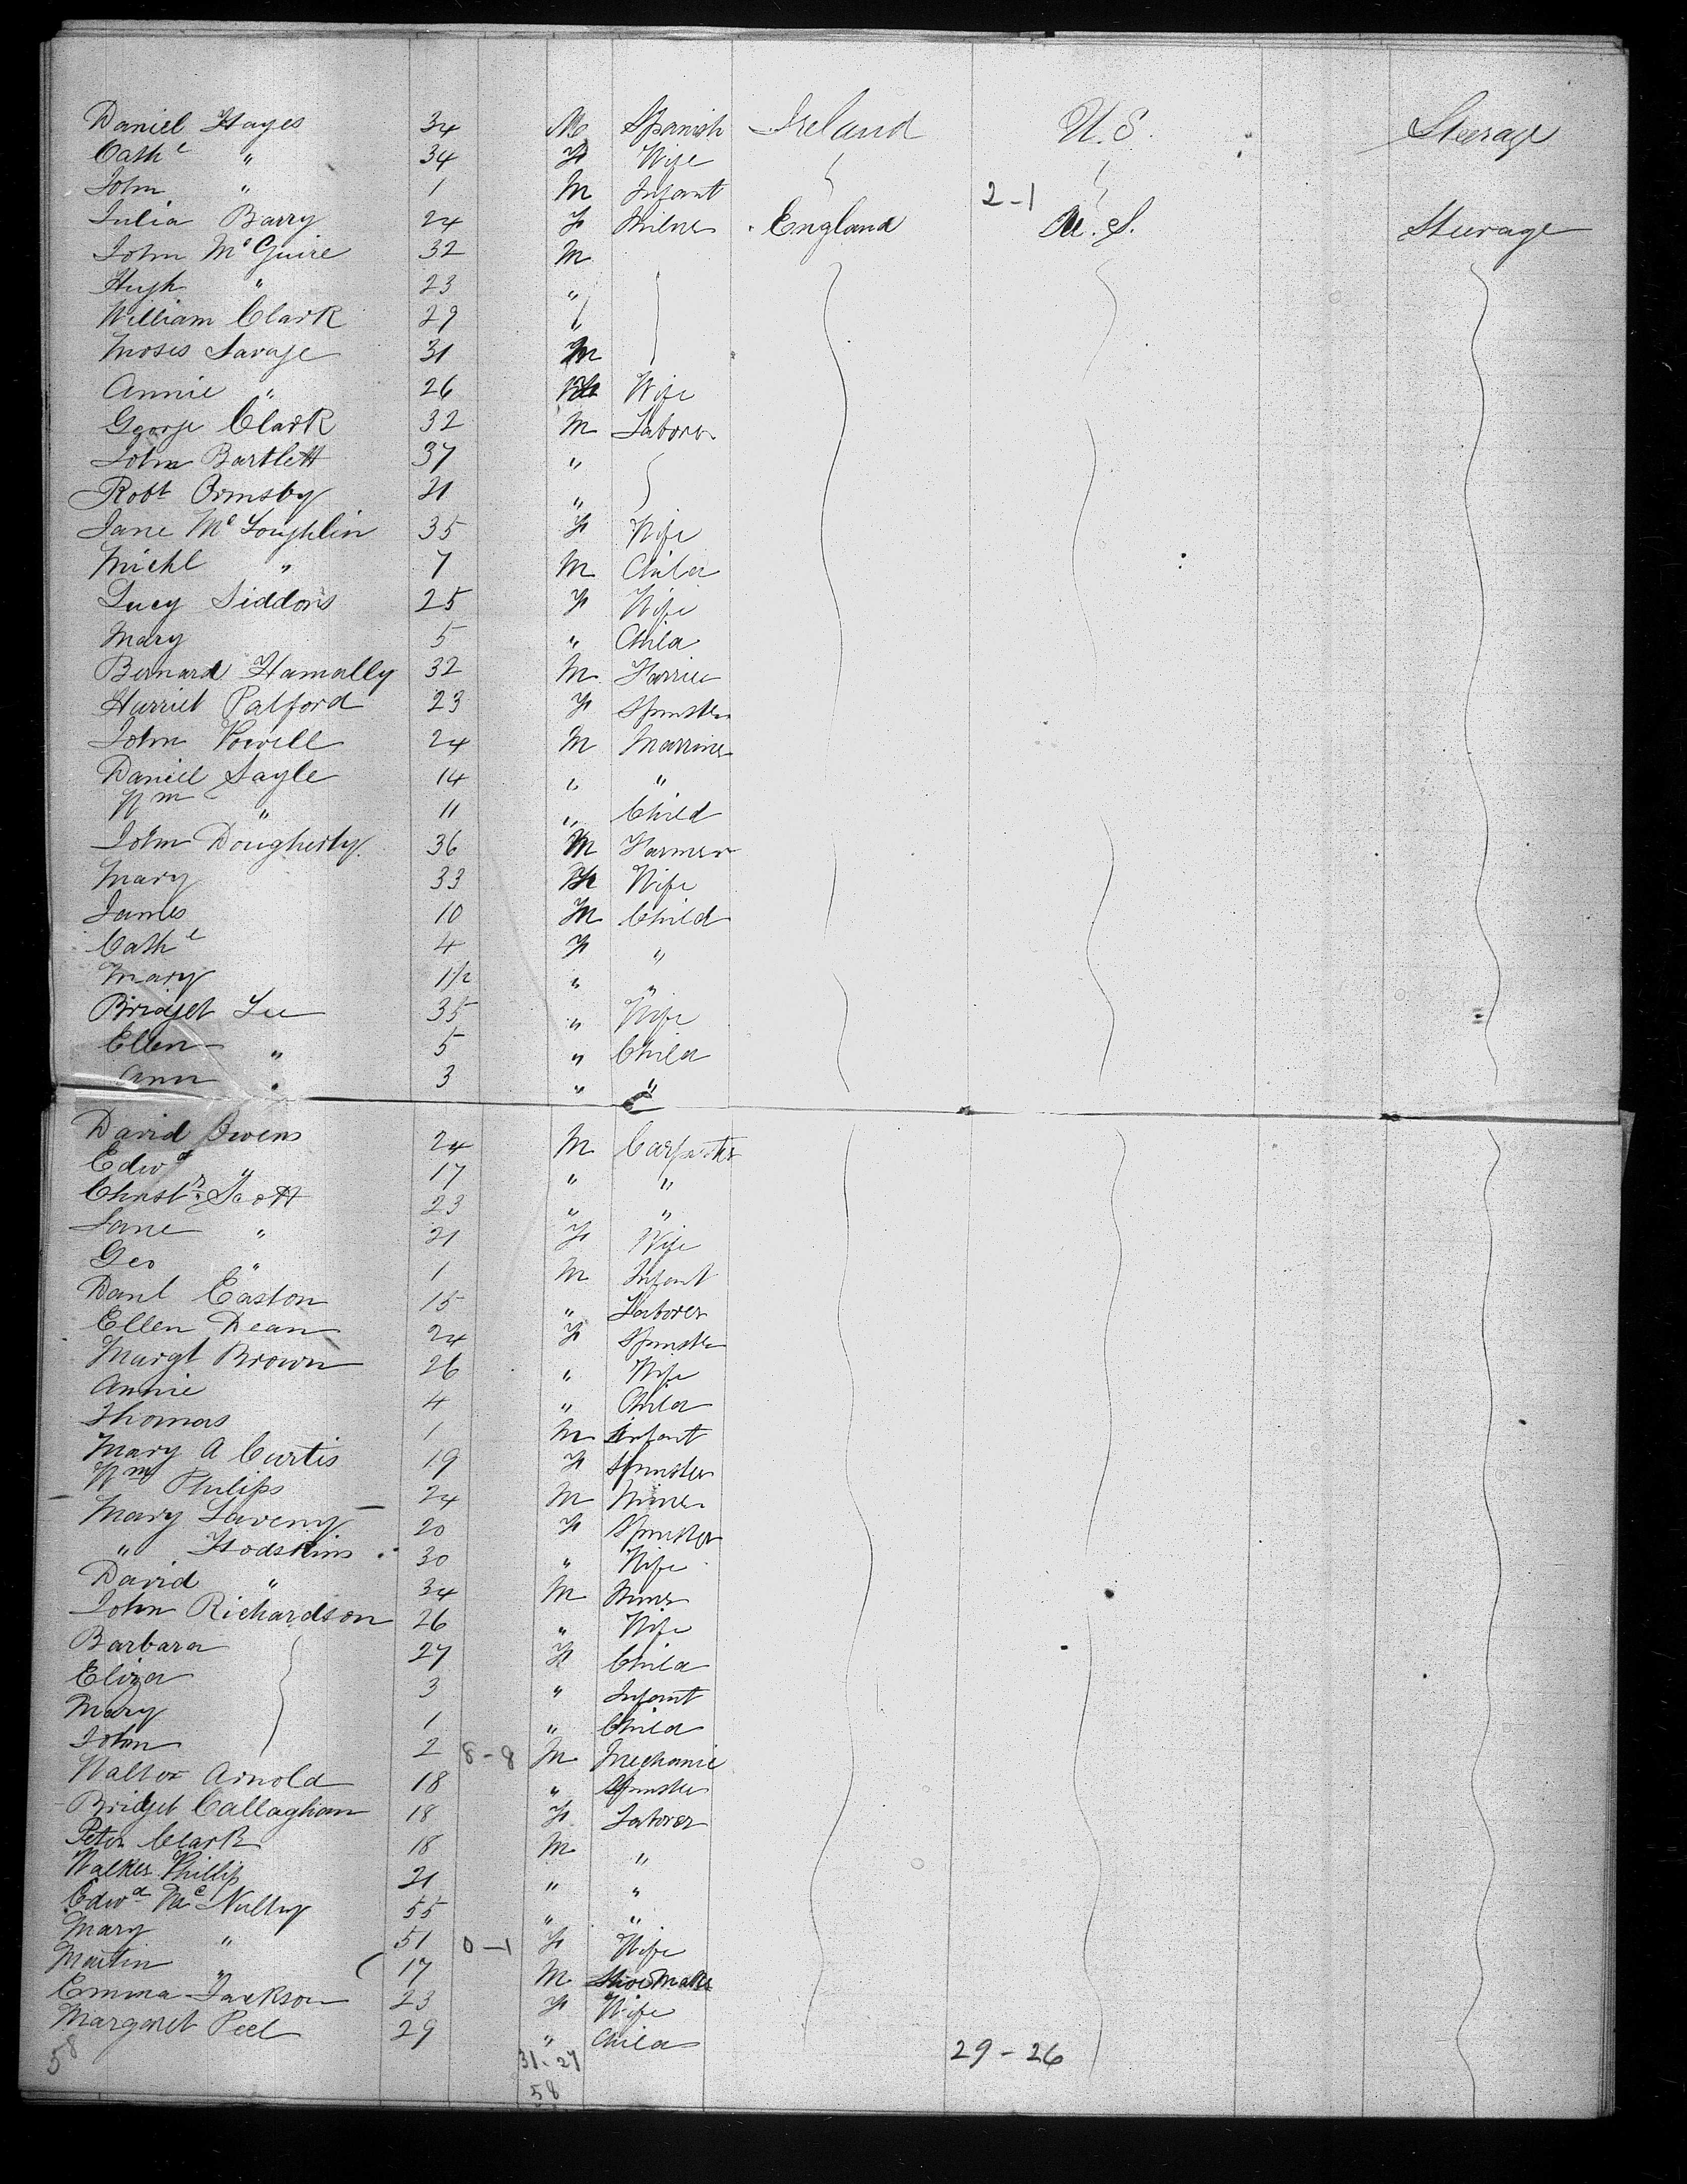 Daniel Hayes 34 M Spanish Ireland U.S. Steerage
Cath^e " 34 F Wife
John " 1 M Infant 2-1
Julia Barry 24 F Milner England U.S. Steerage
John McGuire 32 M
Hugh " 23 "
William Clark 29 "
Moses Savage 31 M
Annie " 26 F Wife
George Clark 32 M Laborer
John Bartlett 37 "
Robt Ormsby 21 "
Jane McLoughlin 35 F Wife
Michl " 7 M Child
Lucy Siddons 25 F Wife
Mary 5 " Child
Bernard Hamally 32 M Farrier
Harriet Patford 23 F Spinster
John Powell 24 M Marriner
Daniel Sayle 14 " "
Wm " 11 " Child
John Dougherty 36 M Farmer
Mary 33 F Wife
James 10 M Child
Cath^e 4 F "
Mary 1½ " "
Bridget Lee 35 " Wife
Ellen " 5 " Child
Ann " 3 " "
David Owens 24 M Carpenter
Edwd " 17 " "
Christr Scott 23 " "
Jane " 21 F Wife
Geo " 1 M Infant
Danl Easton 15 " Laborer
Ellen Dean 24 F Spinster
Margt Brown 26 " Wife
Annie 4 " Child
Thomas 1 M Infant
Mary A Curtis 19 F Spinster
Wm Philips 24 M Miner
Mary Laveny 20 F Spinster
" Hodskins 30 " Wife
David " 34 M Miner
John Richardson 26 " Wife
Barbara 27 F Child
Eliza 3 " Infant
Mary 1 " Child
John 2 8-8 M Mechanic
Walter Arnold 18 " Spinster
Bridget Callaghan 18 F Laborer
Peter Clark 18 M "
Walker Phillip 21 " "
Edwd McNulty 55 " "
Mary " 51 0-1 F Wife
Martin " 17 M Shoemaker
Emma Jackson 23 F Wife
Margaret Peel 29 " Child
58 31-27 29-26
58